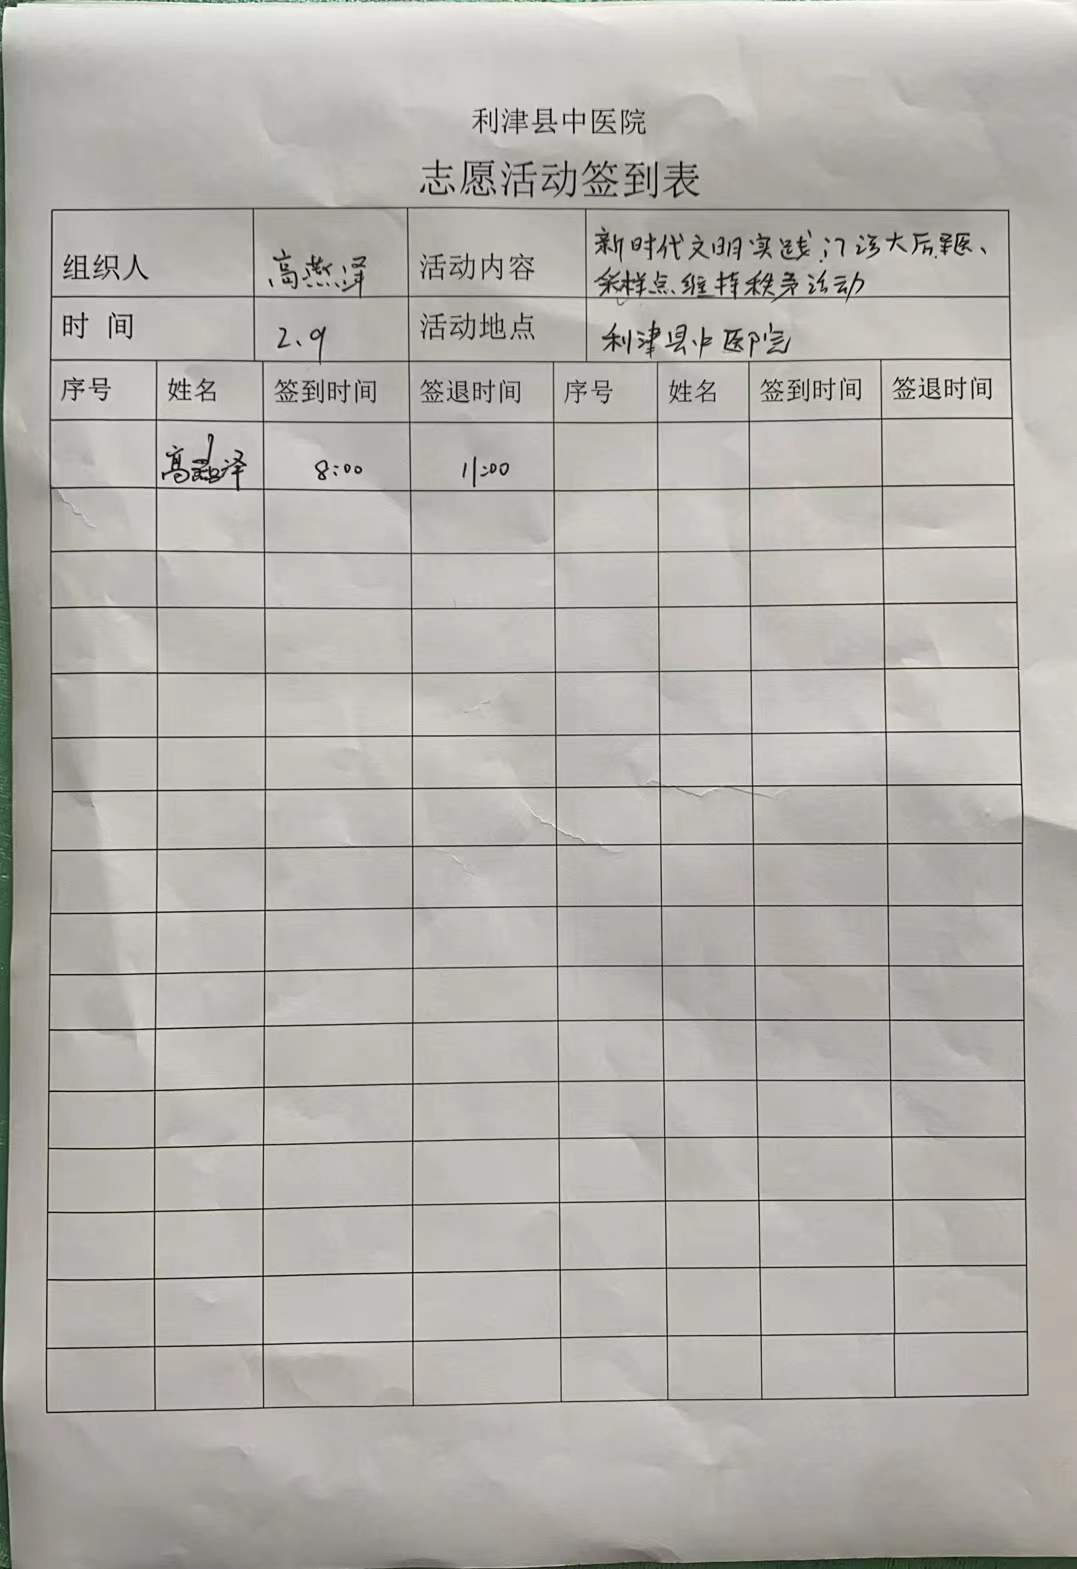 利津县中医院
志愿活动签到表
组织人 高燕泽 活动内容 新时代文明实践,门诊大厅
采样点维持秩序活动
时 间 2.9 活动地点 利津县中医院
序号 姓名 签到时间 签退时间 序号 姓名 签到时间 签退时间
高 泽 8:00 11:00